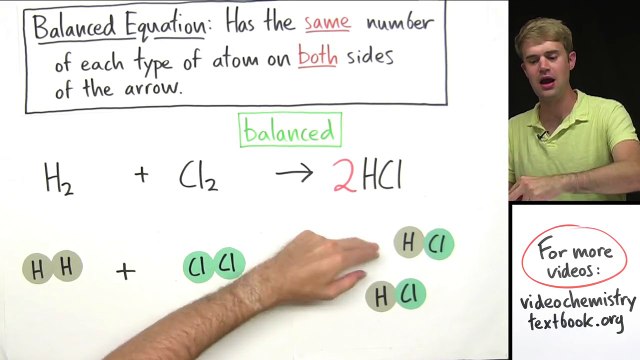 Balanced Equation: Has the same number
of each type of atom on both sides
of the arrow.
balanced
H₂ + Cl₂ → 2HCl
H H + Cl Cl
H Cl
H Cl
For more
videos:
videochemistry
textbook.org